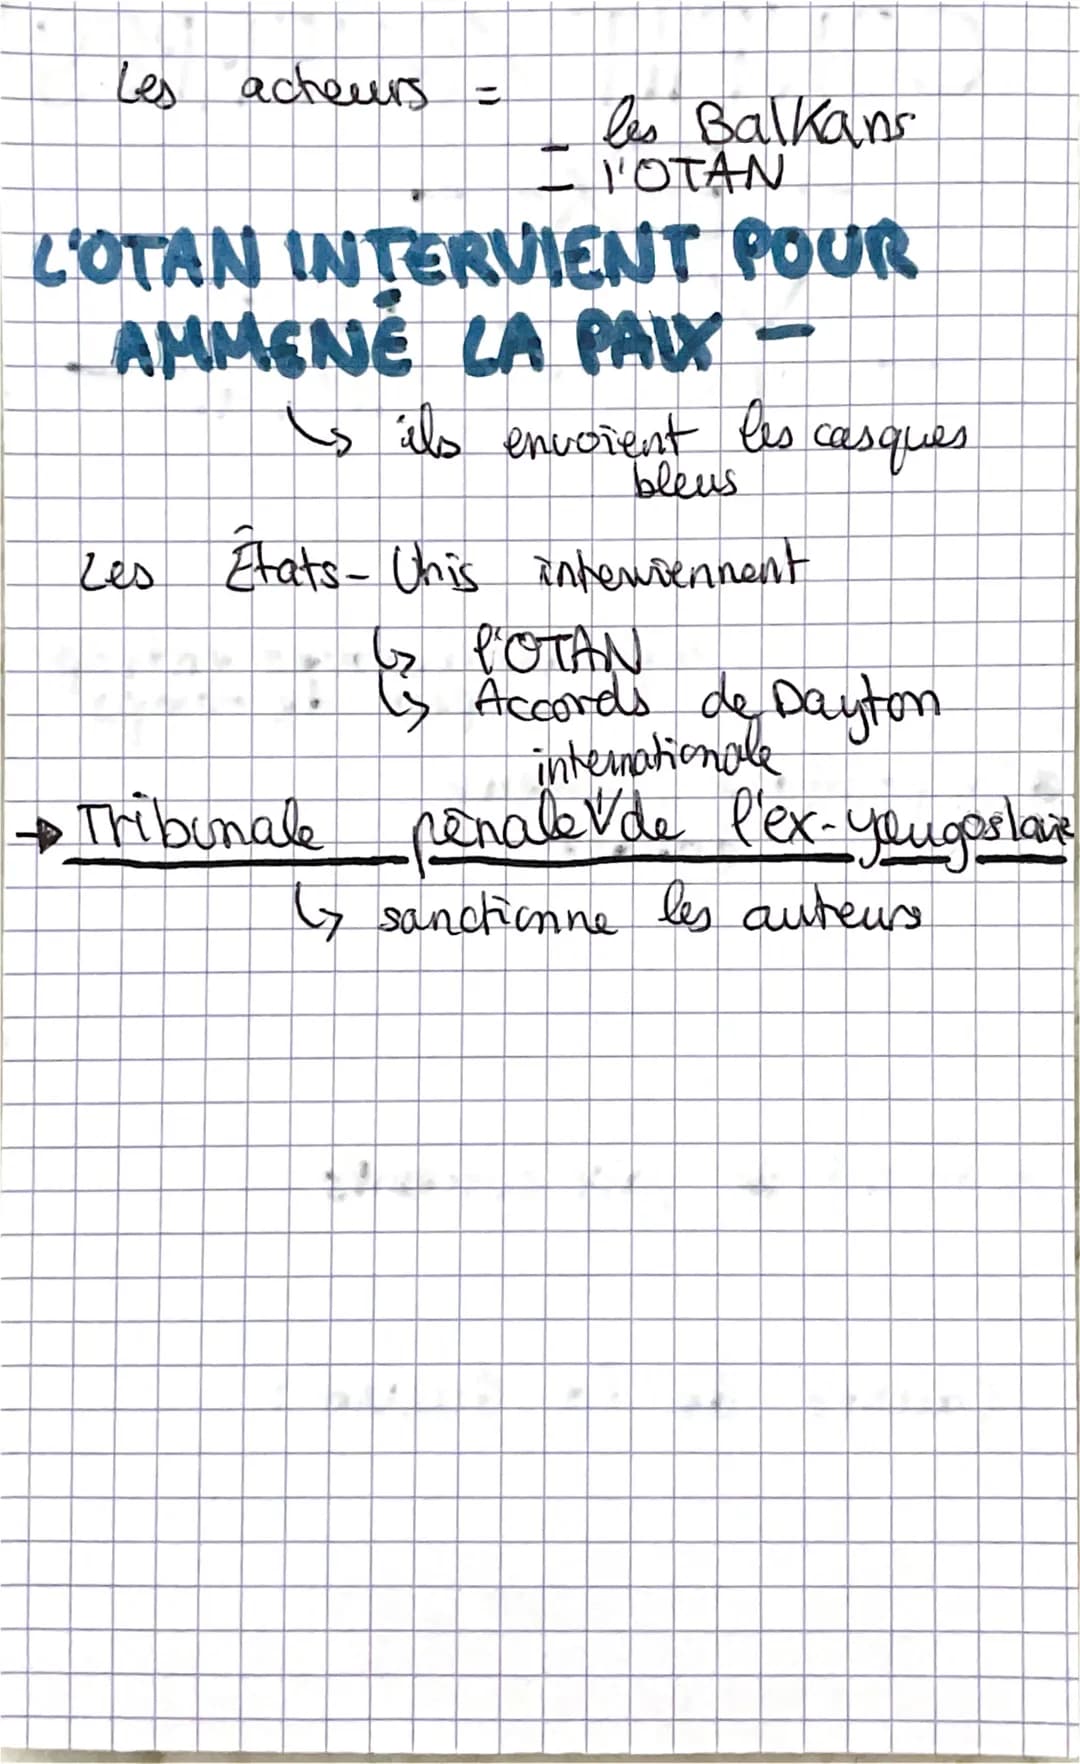 Les acteurs =
- les Balkans
- l'OTAN
L'OTAN INTERVIENT POUR
AMMENÉ LA PAIX -
↳ ils envoient les casques
bleus
Les États-Unis interviennent
↳ l'OTAN
↳ Accords de Dayton
internationale
→ Tribunale pénale V de l'ex-yougoslavie
↳ sanctionne les auteurs